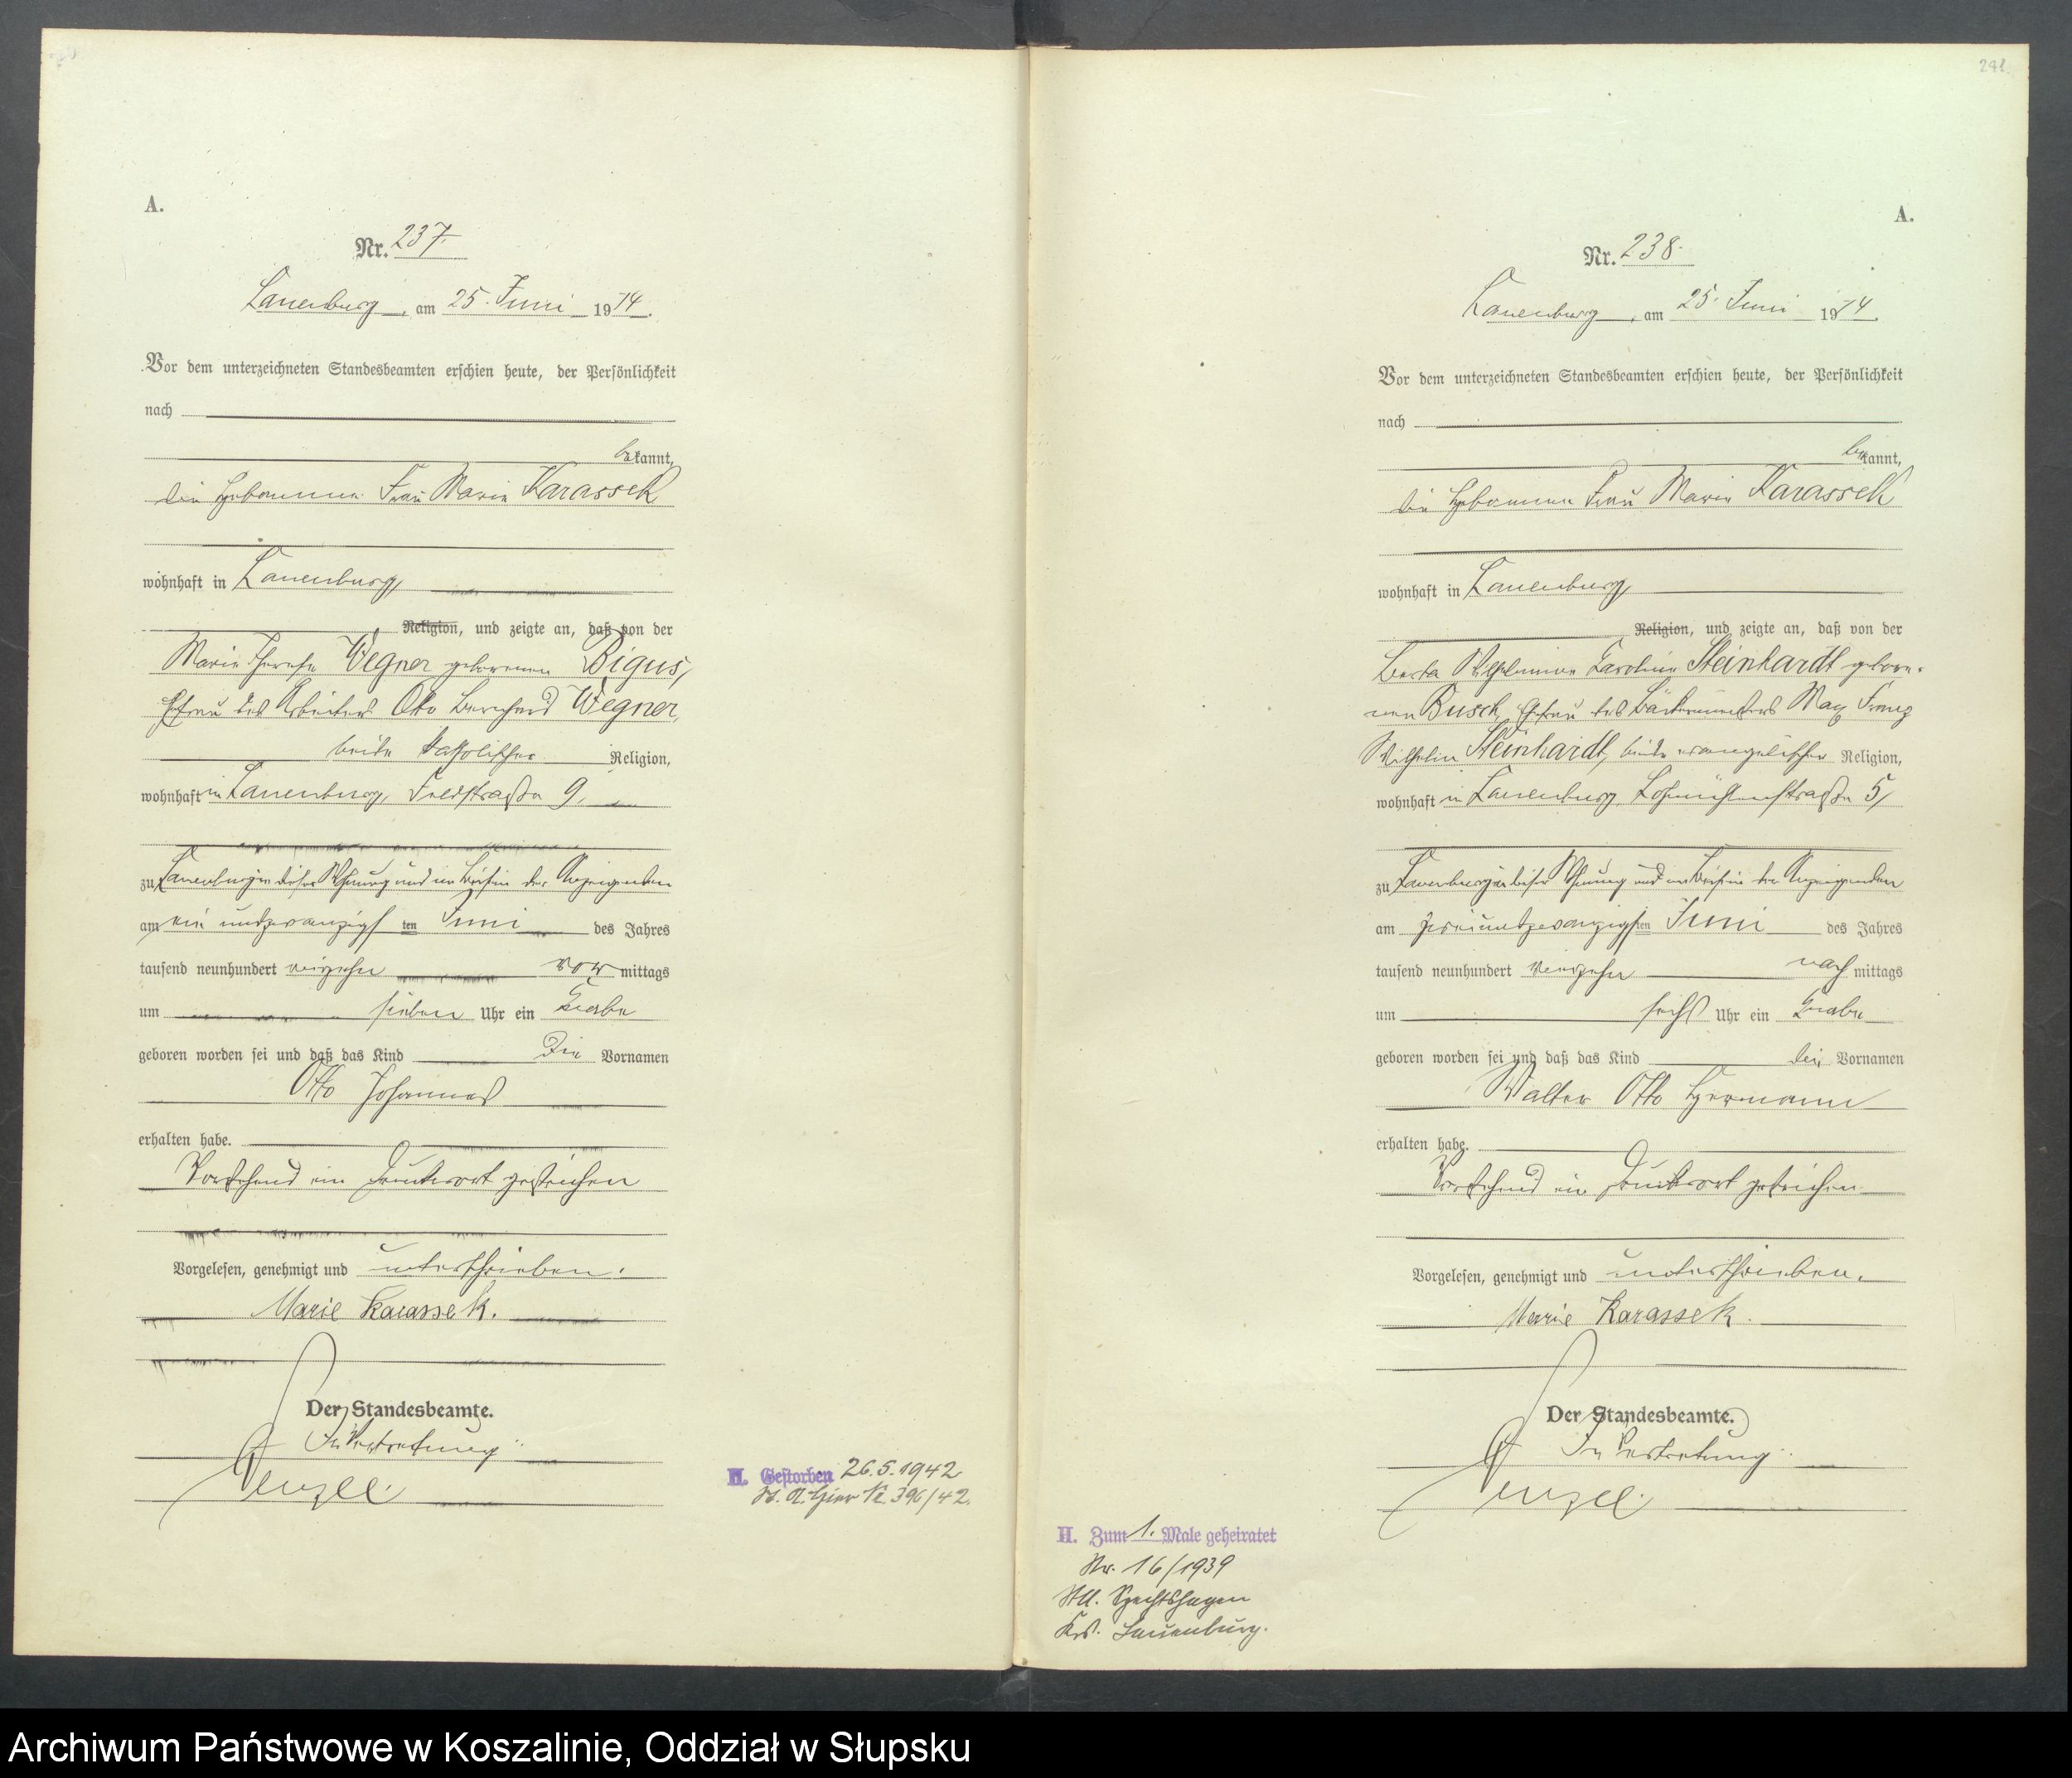 A.
Nr. 237.
Lauenburg, am 25. Juni 1914.
Vor dem unterzeichneten Standesbeamten erschien heute, der Persönlichkeit
nach
bekannt,
die Hebamme Frau Marie Karassek
wohnhaft in Lauenburg,
Religion, und zeigte an, daß von der
Marie Therese Wegner geborenen Bigus,
Ehefrau des Arbeiters Otto Bernhard Wegner,
beide katholischer Religion,
wohnhaft in Lauenburg, Feldstraße 9,
zu Lauenburg in dieser Wohnung und im Beisein der Anzeigenden
am ein undzwanzigsten Juni des Jahres
tausend neunhundert vierzehn vor mittags
um sieben Uhr ein Knabe
geboren worden sei und daß das Kind die Vornamen
Otto Johannes
erhalten habe.
Vorstehend ein Druckwort gestrichen
Vorgelesen, genehmigt und unterschrieben.
Marie Karassek.
Der Standesbeamte.
In Vertretung:
H. Gestorben 26.5.1942
St. A. hier Nr. 396/42.
241.
A.
Nr. 238.
Lauenburg, am 25. Juni 1914.
Vor dem unterzeichneten Standesbeamten erschien heute, der Persönlichkeit
nach
bekannt,
die Hebamme Frau Marie Karassek
wohnhaft in Lauenburg,
Religion, und zeigte an, daß von der
Berta Wilhelmine Karoline Steinhardt gebore-
nen Busch, Ehefrau des Bäckermeisters Max Franz
Wilhelm Steinhardt, beide evangelischer Religion,
wohnhaft in Lauenburg, Lohmühlenstraße 5,
zu Lauenburg in dieser Wohnung und im Beisein der Anzeigenden
am zweiundzwanzigsten Juni des Jahres
tausend neunhundert vierzehn nach mittags
um sechs Uhr ein Knabe
geboren worden sei und daß das Kind die Vornamen
Walter Otto Hermann
erhalten habe.
Vorstehend ein Druckwort gestrichen.
Vorgelesen, genehmigt und unterschrieben.
Marie Karassek.
Der Standesbeamte.
In Vertretung:
H. Zum 1. Male geheiratet
Nr. 16/1939
Krs. Lauenburg.
Archiwum Państwowe w Koszalinie, Oddział w Słupsku